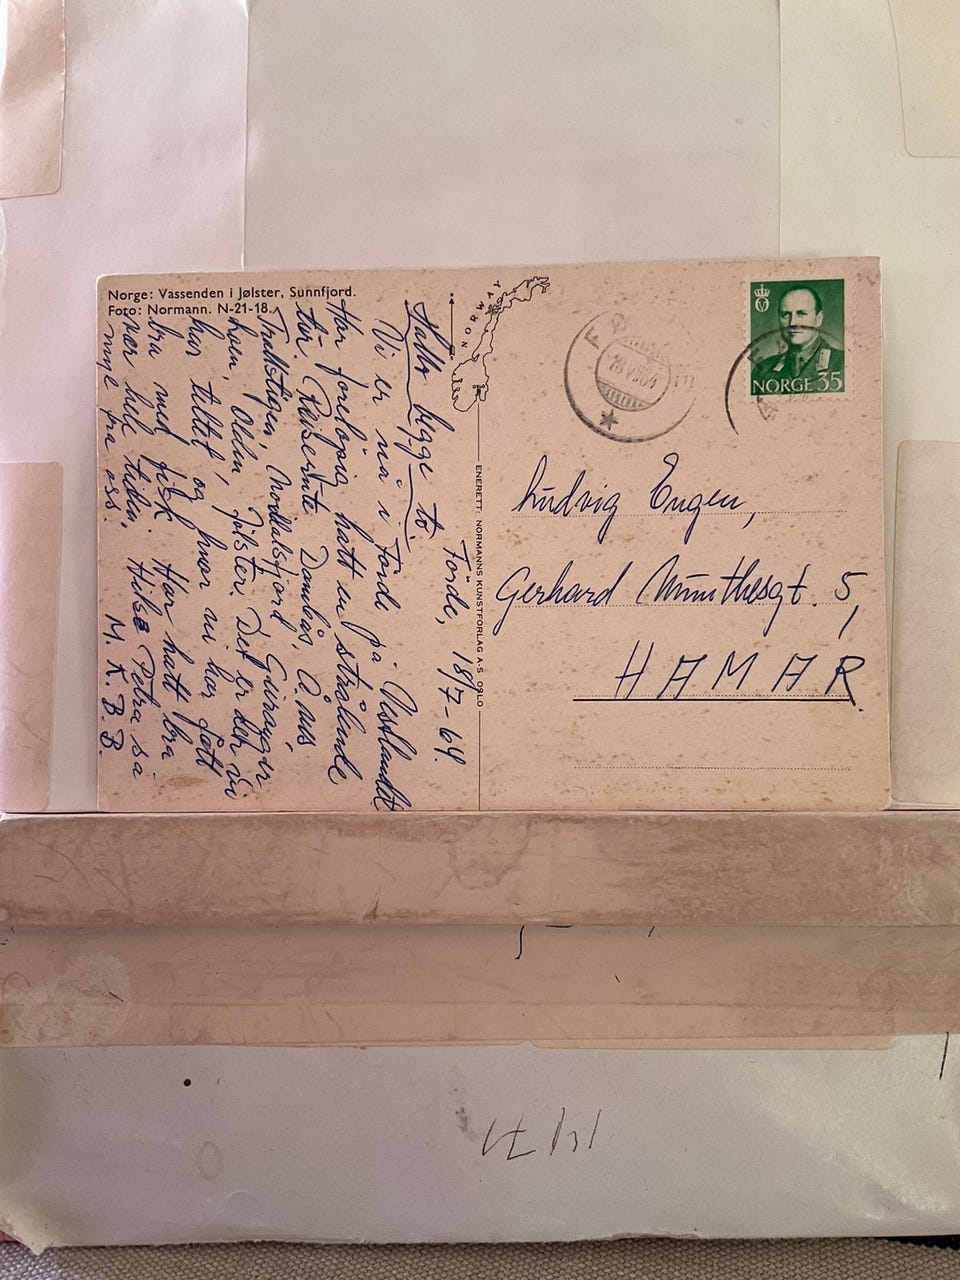 Norge: Vassenden i Jølster, Sunnfjord.
Foto: Normann. N-21-18.
NORWAY
ENERETT: NORMANNS KUNSTFORLAG A-S OSLO
NORGE 35
Förde, 18/7-64.
Hallo begge to.
Vi er nå i Förde på Vestlandet
Har foreløpig hatt en strålende
tur. Reiserute Dombås, Åndalsnes,
Trollstigen, Geiranger
Loen, Olden, Jölster. Det er der vi
har teltet, og hvor vi har gått
bra med fisk. Har hatt bra
vær hele tiden. Hilse Petra så
mye fra oss.
M. K. B. B.
Ludvig Engen,
Gerhard Munthesgt. 5,
HAMAR.